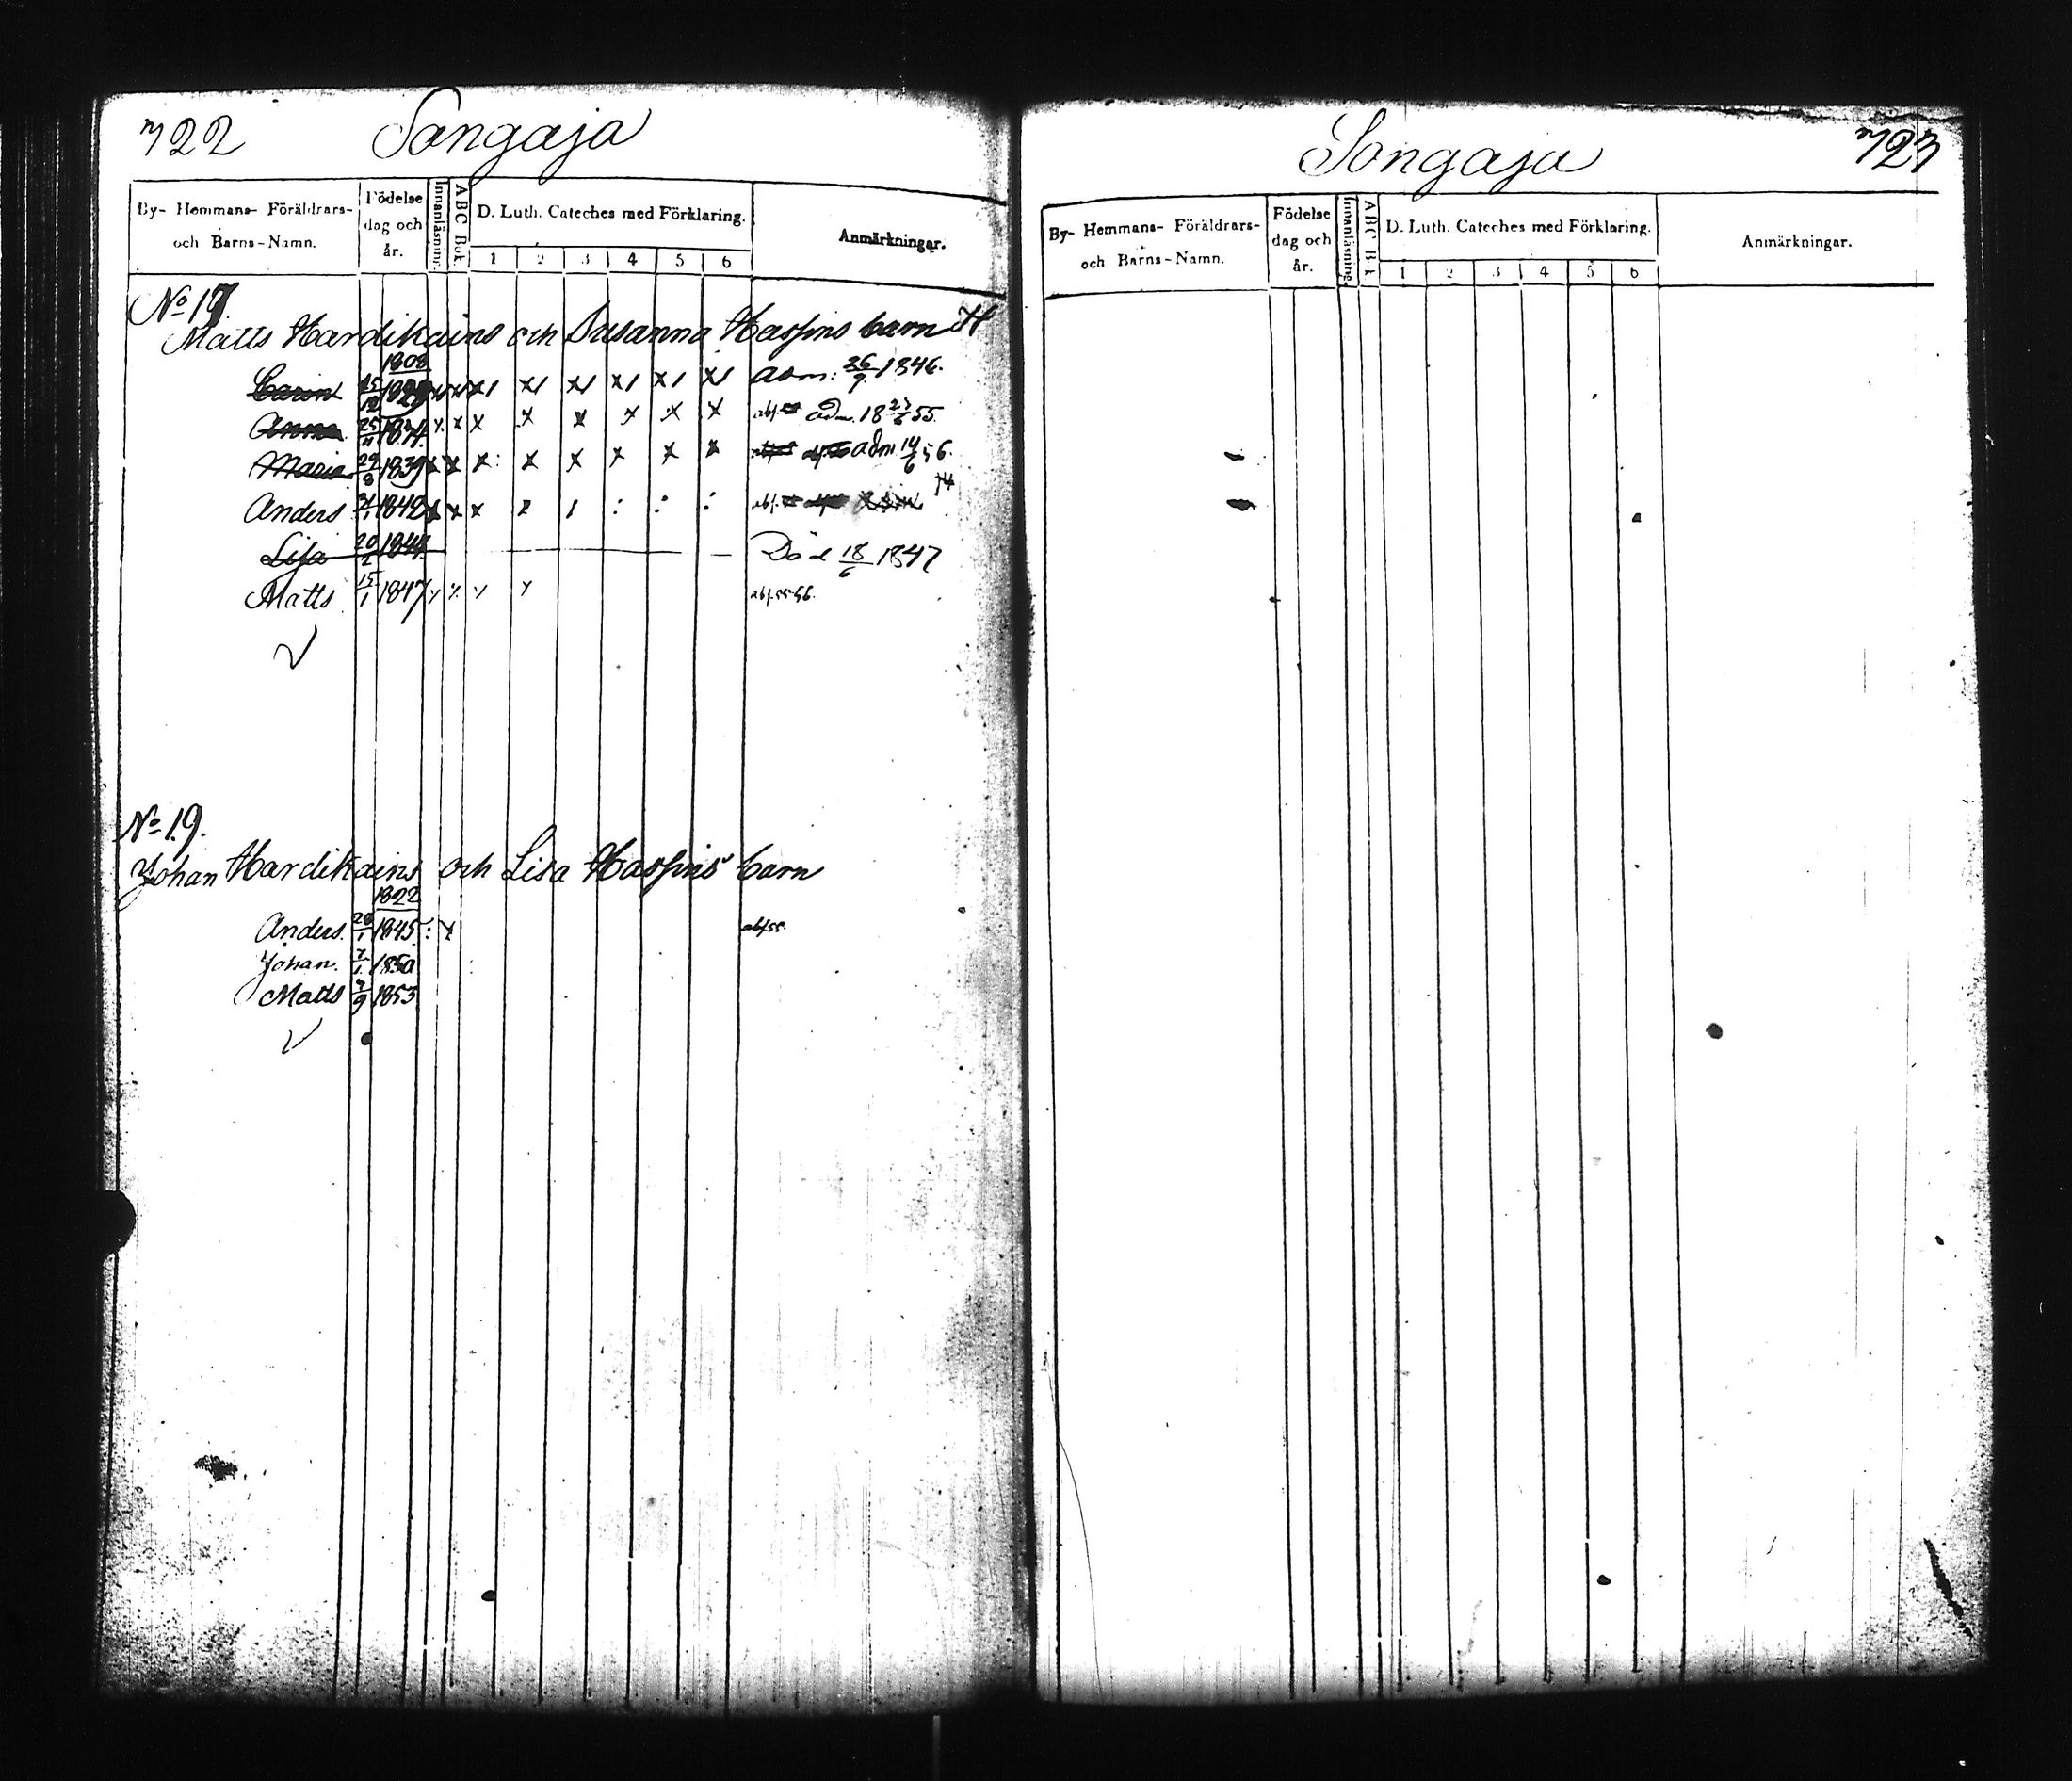 722 Sangaja
By- Hemmans- Föräldrars- och Barns-Namn.
Födelse dag och år.
Innanläsning.
ABC Bok.
D. Luth. Cateches med Förklaring.
1 2 3 4 5 6
Anmärkningar.
No 17.
Matts Hardikains och Susanna Hassins barn
1808
Carin 15/12 1829 x x x1 x1 x1 x1 x1 x1 adm: 26/9 1846.
Anna 25/11 1834. x x x x x x x x abs. adm. 18 23/6 55.
Maria 29/8 1839 x x x: x x x x x adm 14/6 56.
Anders 1842 x x x abs.
Lisa 20/2 1844 Död 18/6 1847
Matts 15/1 1847 abs. 55 56.
No 19.
Johan Hardikains och Lisa Hassins barn
1822
Anders. 20/1 1845 abs 55.
Johan. 1850
Matts 1853
Songaja 723
By- Hemmans- Föräldrars- och Barns-Namn.
Födelse dag och år.
Innanläsning.
ABC Bok
D. Luth. Cateches med Förklaring.
1 2 3 4 5 6
Anmärkningar.